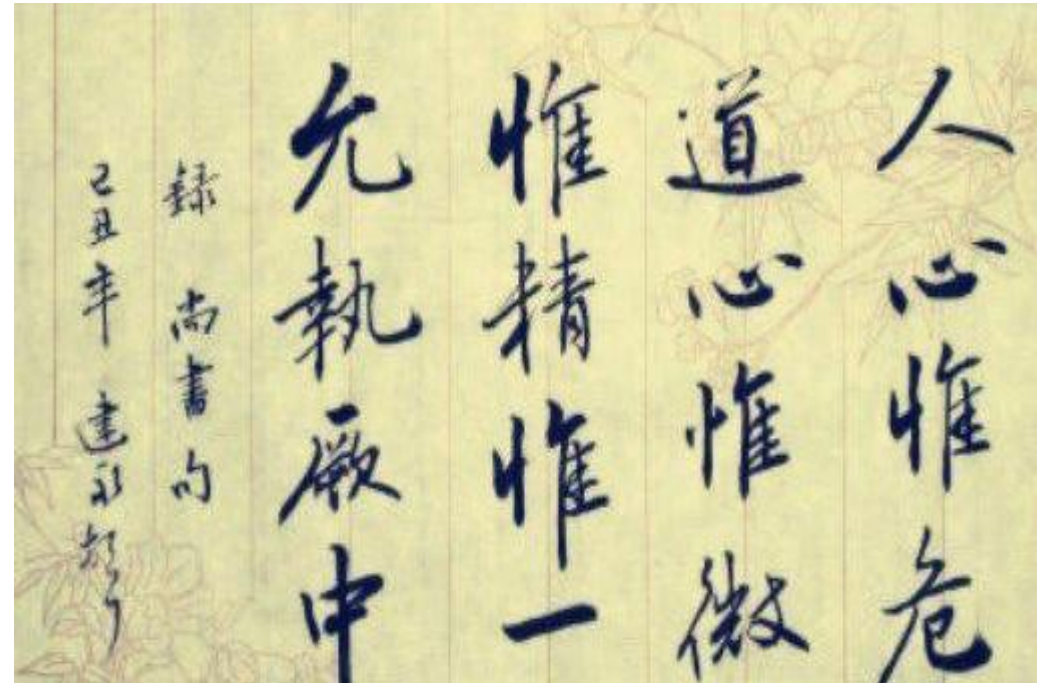 人心惟危
道心惟微
惟精惟一
允執厥中
録尚書句
己丑年建